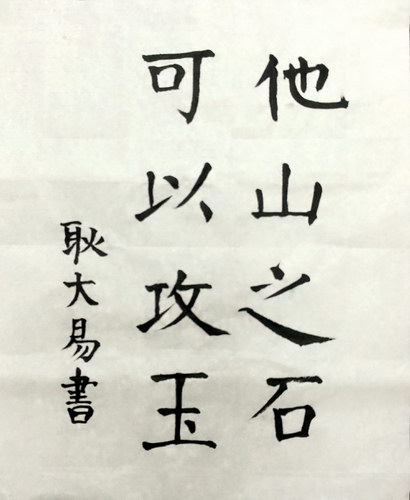 他山之石
可以攻玉
耿大易書